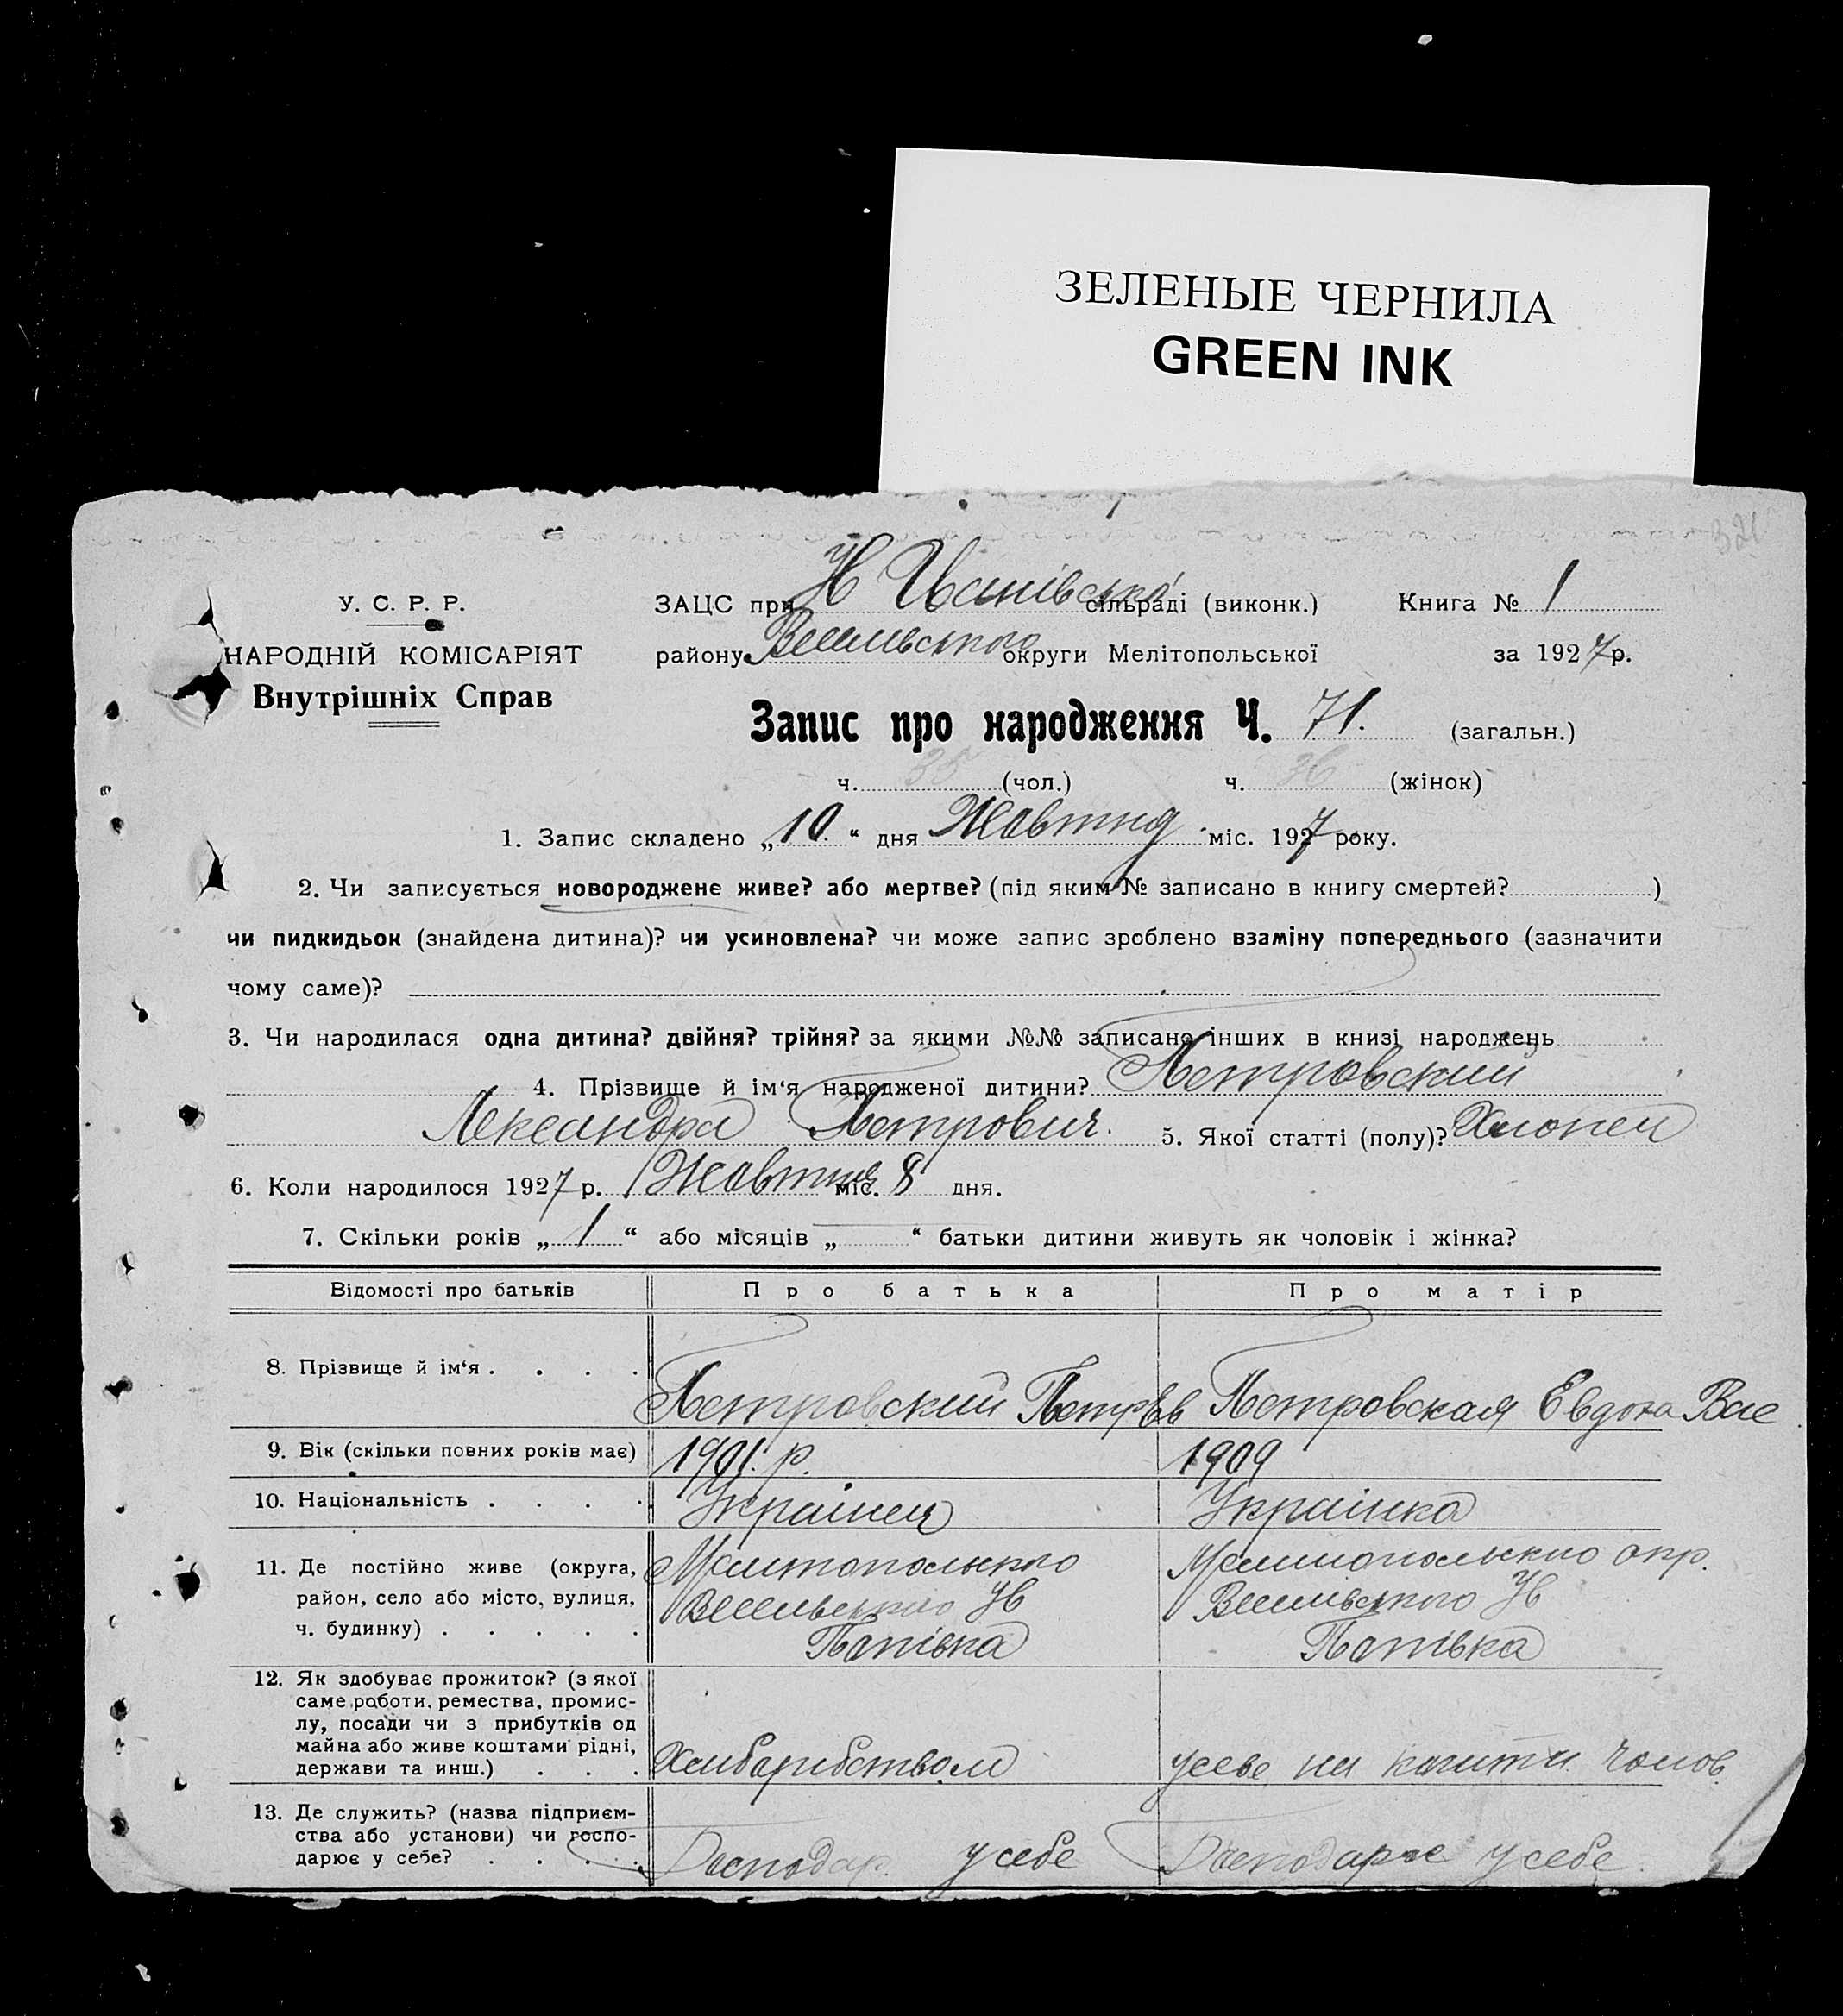 ЗЕЛЕНЫЕ ЧЕРНИЛА
GREEN INK
У. С. Р. Р.
НАРОДНІЙ КОМІСАРІЯТ
Внутрішніх Справ
ЗАЦС при Н сільраді (виконк.) Книга № 1
району округи Мелітопольської за 1927 р.
Запис про народження Ч. 71. (загальн.)
ч. 35 (чол.) ч. 36 (жінок)
1. Запис складено „10“ дня Жовтня міс. 1927 року.
2. Чи записується новороджене живе? або мертве? (під яким № записано в книгу смертей? )
чи пидкидьок (знайдена дитина)? чи усиновлена? чи може запис зроблено взаміну попереднього (зазначити
чому саме)?
3. Чи народилася одна дитина? двійня? трійня? за якими №№ записано інших в книзі народжень
4. Прізвище й ім‘я народженої дитини? Петровский
Александра Петрович. 5. Якої статті (полу)? Хлопец
6. Коли народилося 1927 р. Жовтня міс. 8 дня.
7. Скільки років „1“ або місяців „ “ батьки дитини живуть як чоловік і жінка?
Відомості про батьків Про батька Про матір
8. Прізвище й ім‘я . . . . Петровский Петр Петровская Евдоха Вас
9. Вік (скільки повних років має) 1901 р. 1909
10. Національність . . . . Украінец Украінка
11. Де постійно живе (округа, Мелитопольского Мелитопольского окр.
район, село або місто, вулиця,
ч. будинку) . . . . .
12. Як здобуває прожиток? (з якої
саме роботи, ремества, промис-
лу, посади чи з прибутків од
майна або живе коштами рідні,
держави та инш.) . . . Хлибарибством на кошти чолов.
13. Де служить? (назва підприєм-
ства або установи) чи госпо-
дарює у себе? . . . . Господар. у себе Господарює у себе.